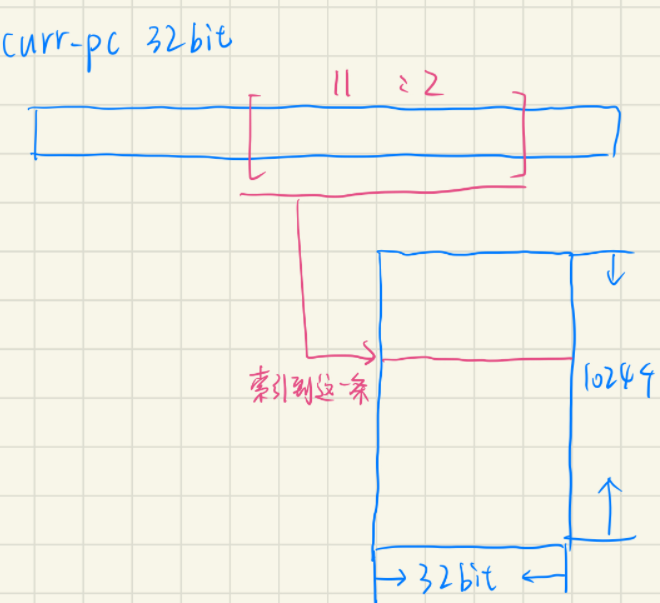 curr-pc 32bit
11 : 2
索引到这一条
1024个
32bit